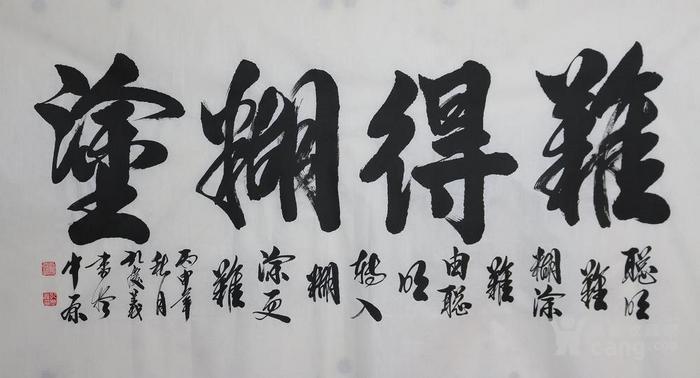 難得糊塗
聪明
難
糊涂
難
由聪
明
转入
糊
涂更
難
丙申年
秋月
孔慶義
書於
中原
cang.com